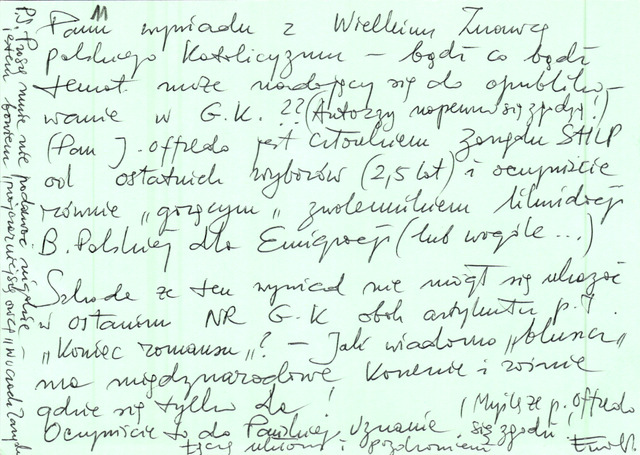 11
Pani wywiadu z Wielkim Znawcą
polskiego Katolicyzmu – bądź co bądź
temat może nadający się do opubliko-
wanie w G.K. ?? (Autorzy napewno się zgodzą!)
(Pan J. Offredo jest członkiem zarządu SHLP
od ostatnich wyborów (2,5 lat) i oczywiście
równie „gorącym„ zwolennikiem likwidacji
B. Polskiej dla Emigracji (lub wogóle ...)
Szkoda że ten wywiad nie mógł się ukazać
w ostanim NR G.K obok artykułu p.t.
„Koniec romansu„? – Jak wiadomo „
ma międzynarodowe i rośnie
gdzie się tylko da!
Oczywiście to do Pańskiej uznanie (Myślę że p. Offredo
się zgodzi!
i pozdrowienia
P.S. Proszę mnie nie podawać nigdzie –
jestem bowiem „